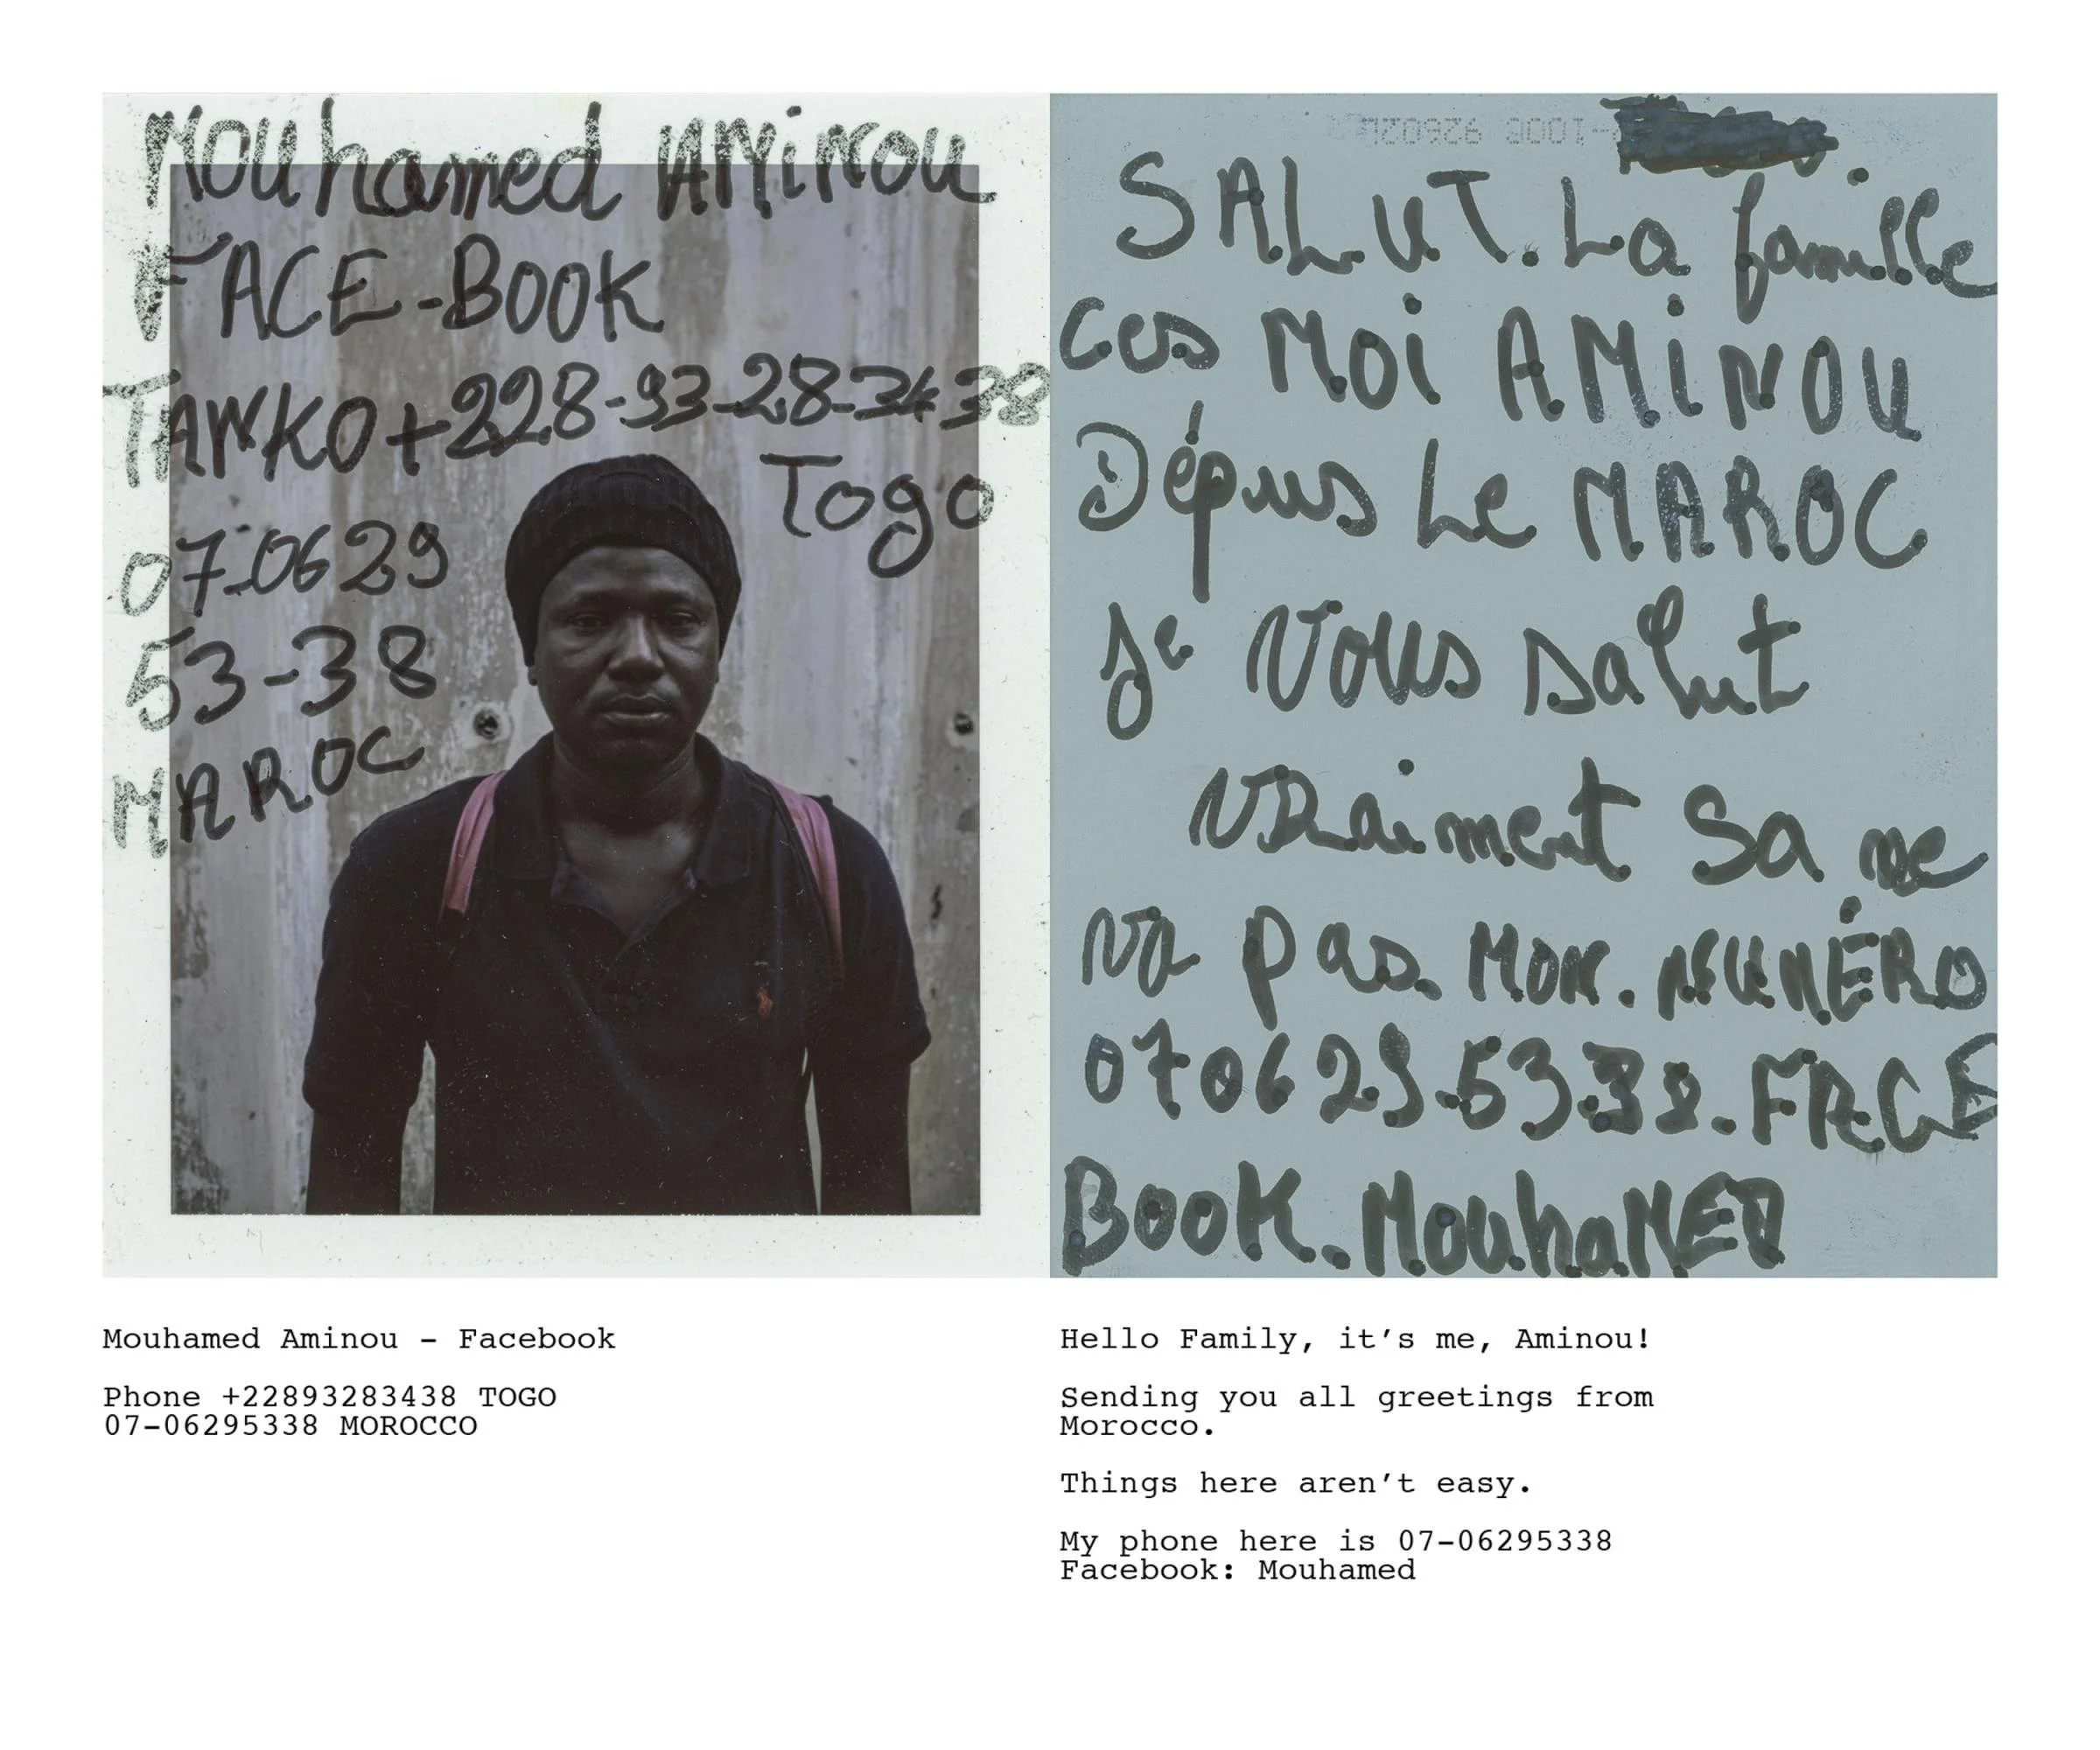 Mouhamed AMiNou
FACE-BOOK
TAWKO+228-93-28-34 38
Togo
07-0629
53-38
MAROC
SALUT. La famille
Ces MOi AMiNOU
Dépuis Le MAROC
je Vous salut
VRaiment Sa ne
va pas. MON. NUMÉRO
070629.53.38. FACE
BOOK. MouhaMED
Mouhamed Aminou – Facebook
Phone +22893283438 TOGO
07–06295338 MOROCCO
Hello Family, it’s me, Aminou!
Sending you all greetings from
Morocco.
Things here aren’t easy.
My phone here is 07–06295338
Facebook: Mouhamed